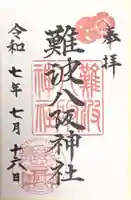 奉拝
難波八阪神社
令和七年七月十六日